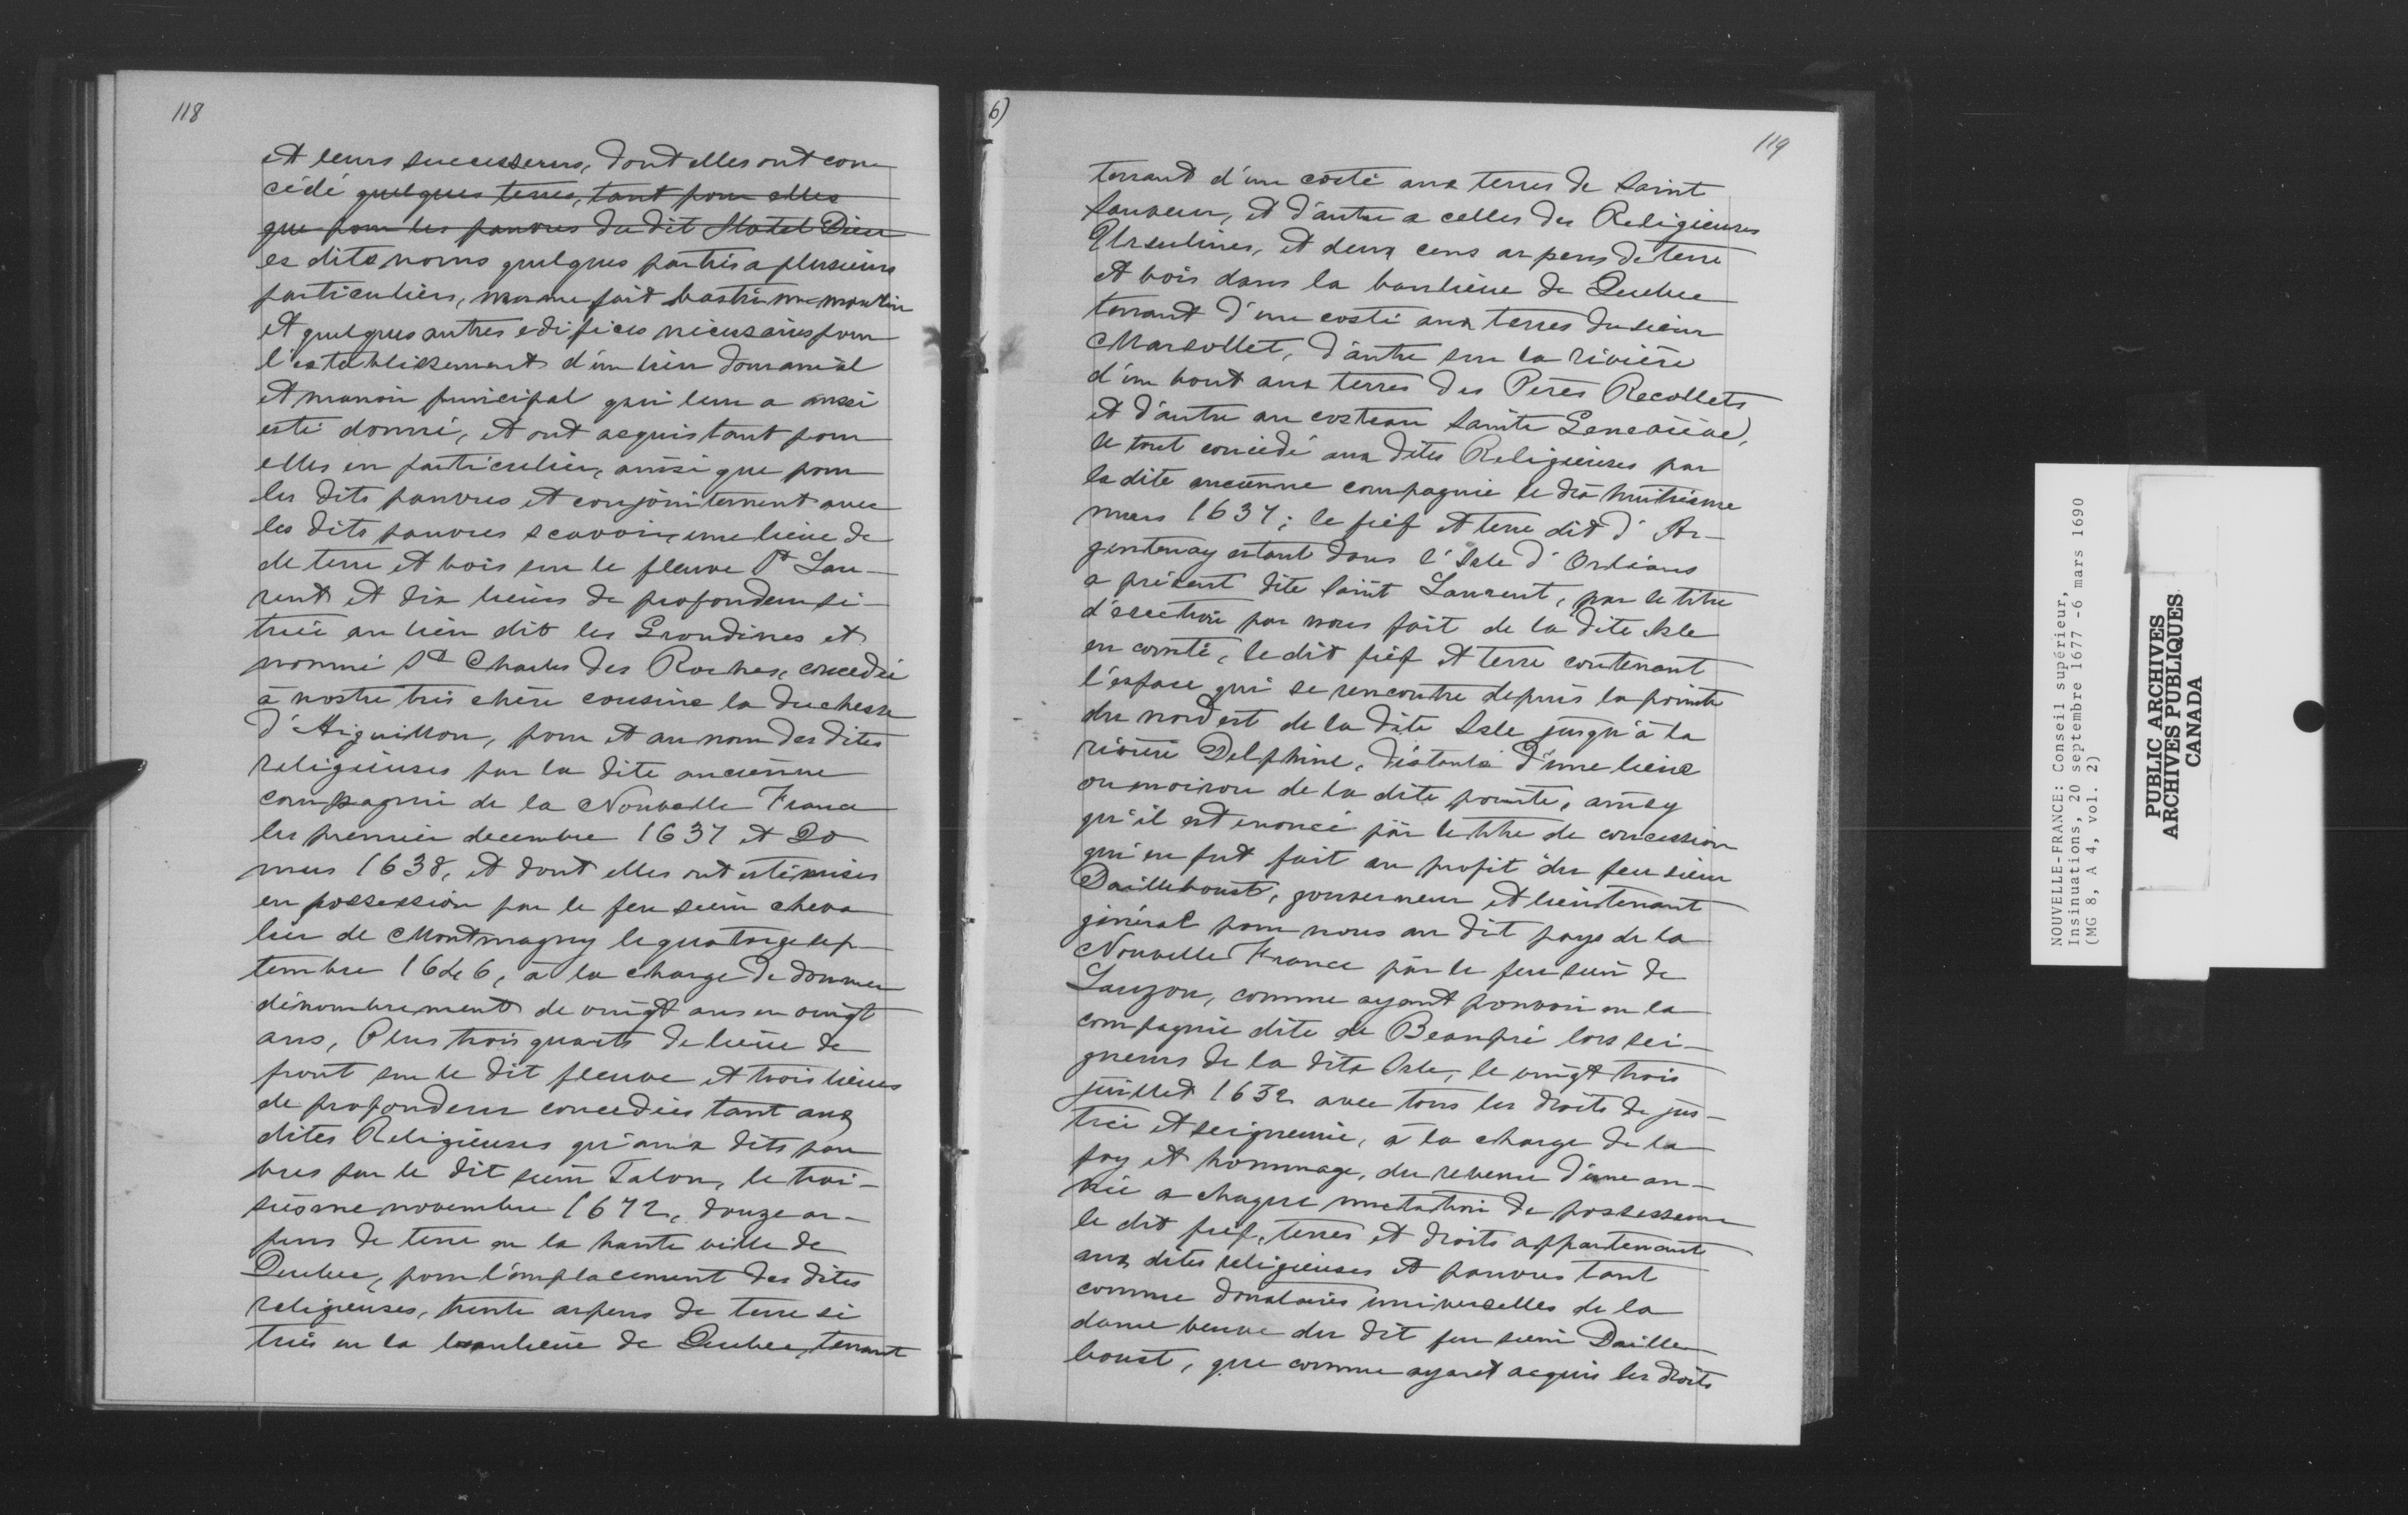 118
et leurs successeurs, dont elles ont con
cédé quelques terres, tant pour elles
que pour les pauvres du dit Hotel Dieu
es dits noms quelques parties a plusieurs
particuliers, mesme fait bastir un moulin
et quelques autres edifices nécessaires pour
l'establissement d'un lieu domanial
et manoir principal qui leur a aussi
esté donné, et ont acquis tant pour
elles en particulier, ainsi que pour
les dits pauvres et conjointement avec
les dits pauvres scavoir, une lieue de
de terre et bois sur le fleuve St Lau-
rent et dix lieues de profondeur si-
tuée au lieu dit les Grondines et
nommé St Charles des Roches, concedée
à nostre très chère cousine la duchesse
d'Aiguillon, pour et au nom des dites
religieuses par la dite ancienne
compagnie de la Nouvelle France
les premier decembre 1637 et 20
mars 1638, et dont elles ont esté mises
en possession par le feu sieur cheva
lier de Montmagny le quatorze sep-
tembre 1646, à la charge de donner
dénombrement de vingt ans en vingt
ans, Plus trois quarts de lieue de
front sur le dit fleuve et trois lieues
de profondeur concedées tant aux
dites Religieuses qu'aux dits pau
vres par le dit sieur Talon, le troi-
siesme novembre 1672, douze ar-
pens de terre en la haute ville de
Quebec, pour l'emplacement des dites
religieuses, trente arpens de terre si
tués en la banlieue de Quebec, tenant
6)
119
tenant d'un costé aux terres de Saint
Sauveur, et d'autre a celles des Religieuses
Ursulines, et deux cens arpens de terre
et bois dans la banlieue de Quebec
tenant d'un costé aux terres du sieur
Marsollet, d'autre sur la rivière
d'un bout aux terres des Peres Recollets
et d'autre au costeau Sainte Geneviève,
le tout concédé aux dites Religieuses par
la dite ancienne compagnie le dix huitiesme
mars 1637; le fief et terre dit d'Ar-
gentenay estant dans l'Isle d'Orléans
a présent dite Saint Laurent, par le titre
d'érection par nous fait de la dite Isle
en comté, le dit fief et terre contenant
l'espace qui se rencontre depuis la pointe
du nord est de la dite Isle jusqu'à la
rivière Delphine, distante d'une lieue
ou environ de la dite pointe, ainsy
qu'il est enoncé par le titre de concession
qui en fut fait au profit du feu sieur
Dailleboust, gouverneur et lieutenant
général pour nous au dit pays de la
Nouvelle France par le feu sieur de
Lauzon, comme ayant pouvoir en la
compagnie dite de Beaupré lors sei-
gneurs de la dite Isle, le vingt trois
juillet 1652 avec tous les droits de jus-
tice et seigneurie, à la charge de la
foy et hommage, du revenu d'une an-
née a chaque mutation de possesseur
le dit fief, terres et droits appartenants
aux dites religieuses et pauvres tant
comme donataires universelles de la
dame veuve du dit feu sieur Daille
boust, que comme ayant acquis les droits
NOUVELLE-FRANCE: Conseil supérieur,
Insinuations, 20 septembre 1677 -6 mars 1690
(MG 8, A 4, vol. 2)
PUBLIC ARCHIVES
ARCHIVES PUBLIQUES
CANADA